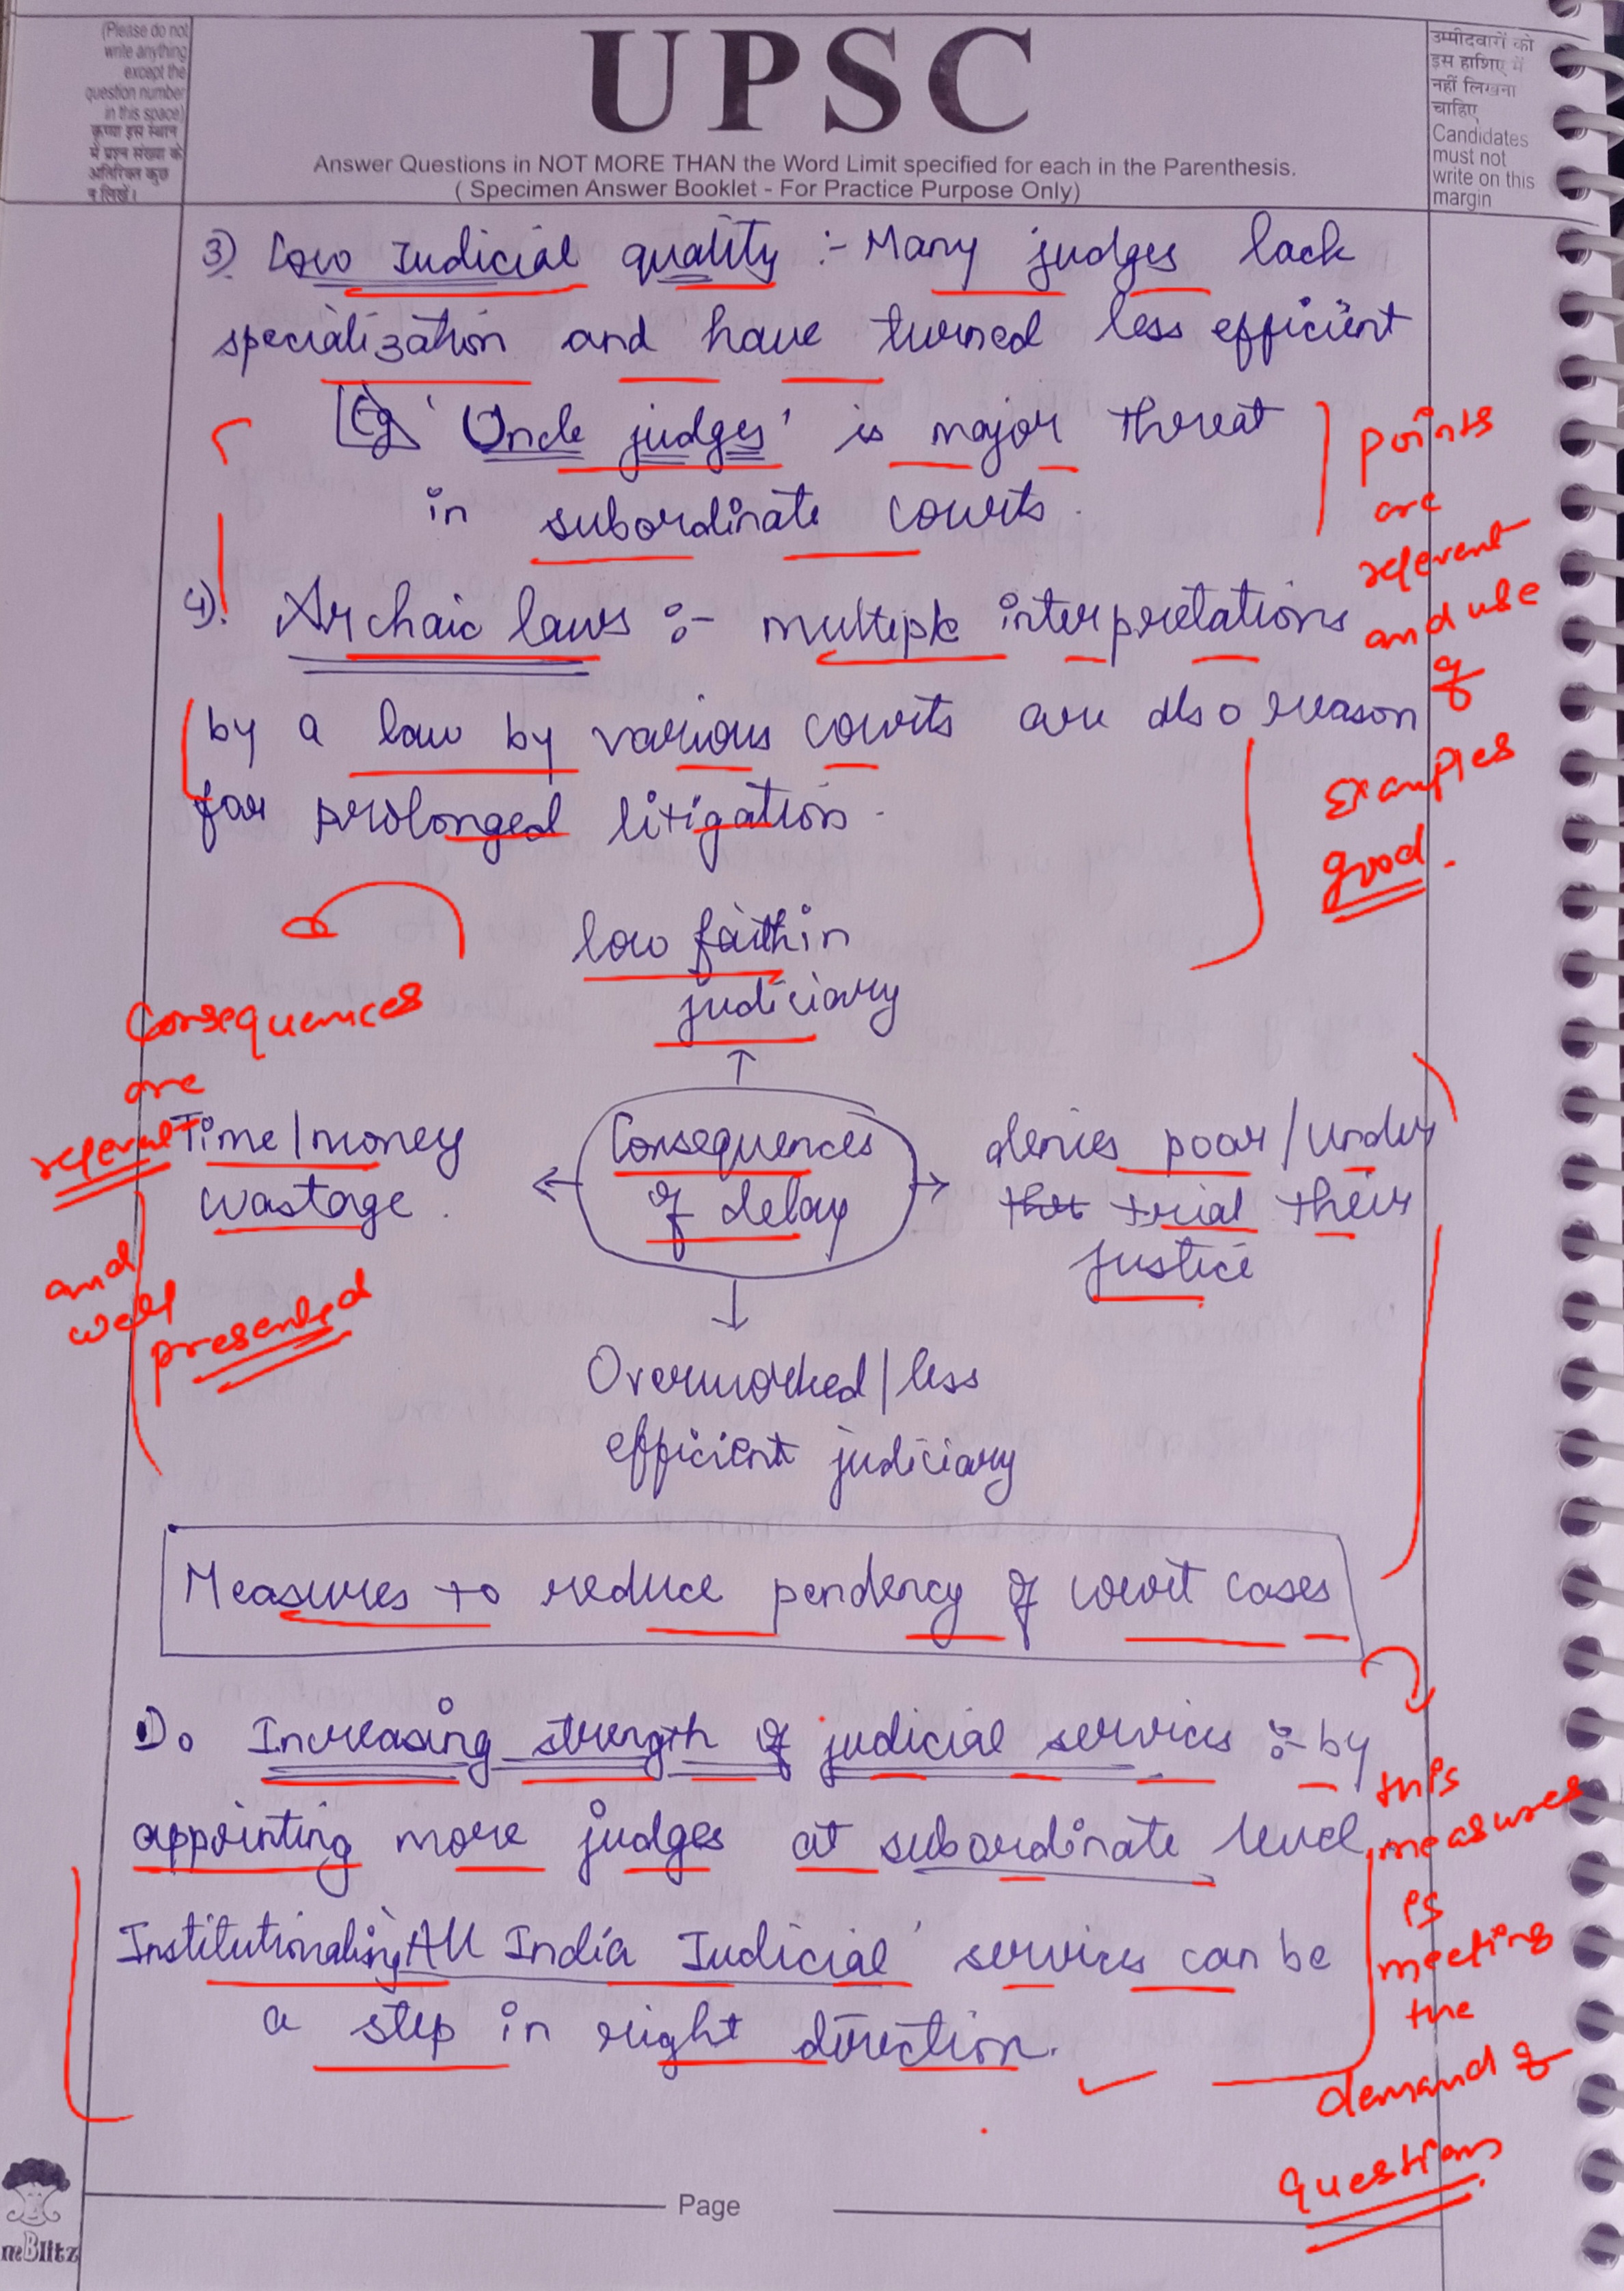 (Please do not
write anything
except the
question number
in this space)
कृपया इस स्थान
में प्रश्न संख्या के
अतिरिक्त कुछ
न लिखें।
UPSC
Answer Questions in NOT MORE THAN the Word Limit specified for each in the Parenthesis.
( Specimen Answer Booklet - For Practice Purpose Only)
उम्मीदवारों को
इस हाशिए में
नहीं लिखना
चाहिए
Candidates
must not
write on this
margin
3) Low Judicial quality :- Many judges lack
specialization and have turned less efficient
Eg 'Uncle judges' is major threat
in subordinate courts.
points
are
relevent
and use
of
Examples
good.
4). Archaic laws :- multiple interpretations
by a law by various courts are also reason
for prolonged litigation.
Consequences
are
relevant
and
well
presented
low faith in
judiciary
Time/money
wastage.
Consequences
of delay
denies poor/under
trial their
justice
Overworked/less
efficient judiciary
Measures to reduce pendency of court cases
1). Increasing strength of judicial services :- by
appointing more judges at subordinate level
Institutionalising All India Judicial' services can be
a step in right direction.
this
measures
is
meeting
the
demand of
Questions
Page
meBlitz